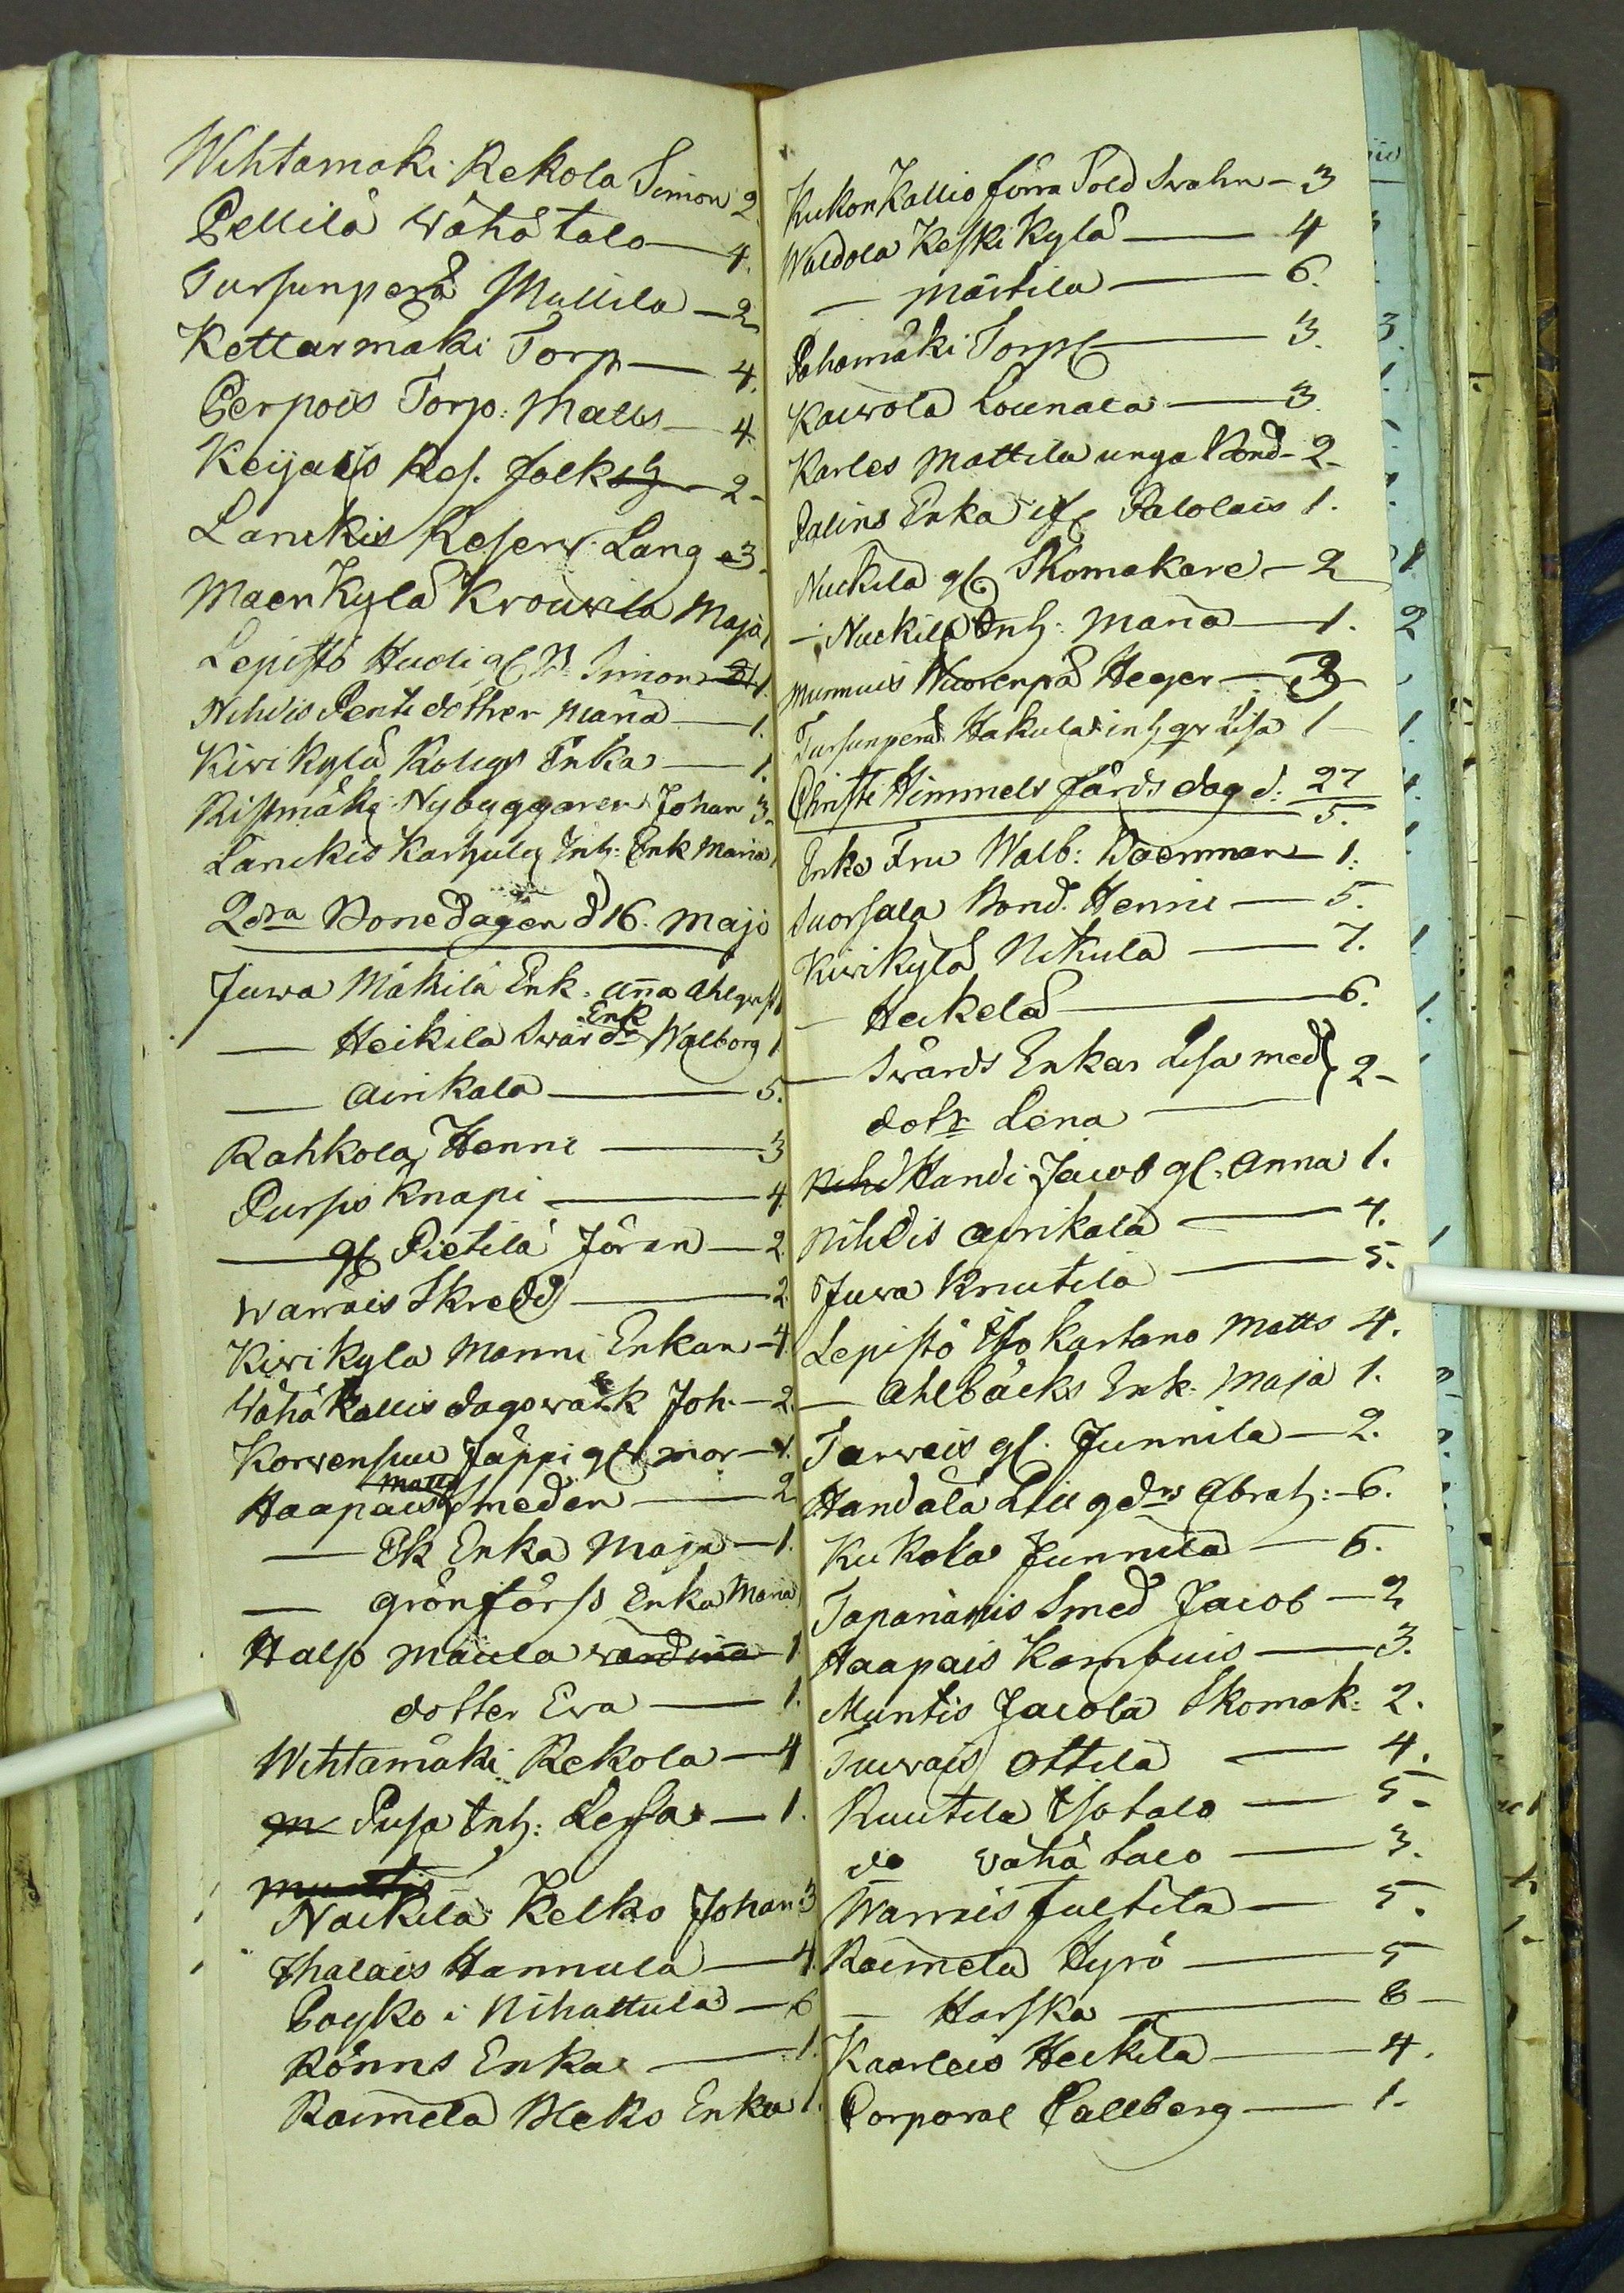 Wihtamäki Rekola Simon 2
Pellilä Wähä talo — 4.
Tursunperä Mullila — 2
Kettarmäki Torp — 4.
Perpois Torp. Matts — 4.
Keijais Res. folk — 2 -
Lanckis Reserv. Lang - 3.
Maenkylä Krouwila Maja 1
Lepistö Hudi gl Simon 1.
Nihdis Pentti dotter Maria — 1.
Kiwikylä Enka — 1.
Ristmäki Nybyggaren Johan 3.
Lanckis Karhula Inh: Enk Maria 1
2dra Bönedagen d 16. Maji
Juwa Mäkilä Enk. Aña Ahlqvist 1
— Heikilä Swärds Enk Walborg 1
— Airikala — 5.
Rahkola Henni — 3
Pursis Knapi — 4.
— gl Pietilä Jöran — 2.
Warrais Skredd — 2.
Kiwikyla Manni Enkan — 4.
Wähä Kallis dagswärk Joh. — 2.
Korwensuu Jäppi gl. mor — 1.
Haapais Matts Smeden — 2
— Ek Enka Maja — 1.
— Grönforss Enka Maria
Halso Maula wärdiña — 1
dotter Ewa — 1.
Wihtamäki Rekola — 4
Pusa Inh: Lesa — 1.
Muntis
Naukila Kelko Johan 3
Ihalais Hannula — 4.
Poyko i Nihattula — 6
Rönns Enka — 1.
Raimela Bleks Enka 1.
Kukonkallio förra Sold Swahn — 3
Waldola Keskikylä — 4
— Märtila — 6.
Pahamäki Torp — 3.
Kaiwola Lounala — 3.
Karles Mattila unga Bond — 2 -
Palins Enka Palolais 1.
Nuckila gl Skomakare — 2
— Nuckila Inh: Maria — 1.
Munnuis Nuorenpä Heger — 3
Tursunperä Hakula inh gv Lisa 1 -
Christi Himmelsfärds dag d: 27/5.
Enke Fru Walb: Wacnman — 1.
Suorsala Bond. Henni — 5.
Kiwikylä Nikula — 7.
— Heikelä — 6.
— Swärds Enkas Lisa med } 2 -
dotr Lena
Handi Jacob gl. Anna 1.
Nihdis Airikala — 4.
Juwa Knutila — 5.
Lepistö Iso Kartano Matts 4.
— Ahlbäcks Enk: Maja 1.
Tarwais gl. Junnila — 2.
Handala Lill gdrs Abrah: — 6.
Kukola Junnila — 5.
Tapanainis Smed Jacob — 2
Haapais Kambuis — 3.
Muntis Jacola Skomak: 2.
Tuwais Ottila — 4.
Ruutila Iso talo — 5 -
do Wähä talo — 3.
Warrais Juttila — 5.
Raimela Hyrö — 5
— Harska — 8 —
Kaarleis Heikila — 4.
Corporal Pallberg — 1.